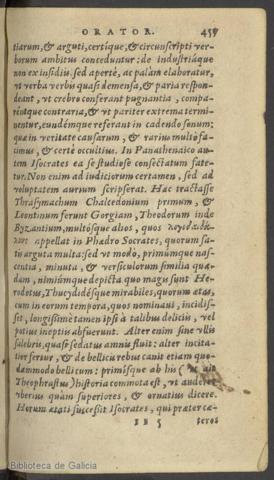 ORATOR. 457
tiarum, & arguti, certique, & circunscripti ver-
borum ambitus conceduntur: de industriáque
non ex insidiis sed apertè, ac palàm elaboratur,
vt verba verbis quasi demensa, & paria respon-
deant, vt crebro conferant pugnantia, compa-
rentque contraria, & vt pariter extrema termi-
nentur, eundémque referant in cadendo sonum:
quæ in veritate causarum, & rarius multò fa-
cimus, & certè occultius. In Panathenaico au-
tem Isocrates ea se studiose consectatum fate-
tur. Non enim ad iudiciorum certamen, sed ad
voluptatem aurium scripserat. Hæc tractasse
Thrasymachum Chalcedonium primum, &
Leontinum ferunt Gorgiam, Theodorum inde
Byzantium, multósque alios, quos
appellat in Phædro Socrates, quorum sa-
tis arguta multa: sed vt modò, primumque nas-
centia, minuta, & versiculorum similia quæ-
dam, nimiúmque depicta. quo magis sunt He-
rodotus, Thucydidésque mirabiles, quorum ætas,
cum in eorum tempora, quos nominaui, incidis-
set, longissimè tamen ipsi à talibus deliciis, vel
potius ineptiis abfuerunt. Alter enim sine vllis
salebris, quasi sedatus amnis fluit: alter incita-
tior fertur, & de bellicis rebus canit etiam quo-
dammodo bellicum: primísque ab his ( vt ait
Theophrastus ) historia commota est, vt auderet
vberius quàm superiores, & ornatius dicere.
Horum ætati successit Isocrates, qui præter cæ-
teros
Biblioteca de Galicia